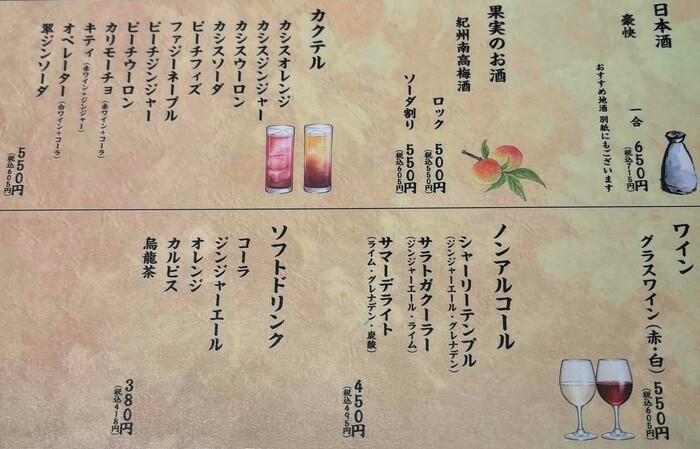 日本酒
豪快
一合 650円
(税込715円)
おすすめ地酒 別紙にもございます
果実のお酒
紀州南高梅酒
ロック 500円
(税込550円)
ソーダ割り 550円
(税込605円)
カクテル
カシスオレンジ
カシスジンジャー
カシスウーロン
カシスソーダ
ピーチフィズ
ファジーネーブル
ピーチジンジャー
ピーチウーロン
カリモーチョ(赤ワイン+コーラ)
キティ(赤ワイン+ジンジャー)
オペレーター(白ワイン+コーラ)
翠ジンソーダ
550円
(税込605円)
ワイン
グラスワイン(赤・白) 550円
(税込605円)
ノンアルコール
シャーリーテンプル
(ジンジャーエール・グレナデン)
サラトガクーラー
(ジンジャーエール・ライム)
サマーデライト
(ライム・グレナデン・炭酸)
450円
(税込495円)
ソフトドリンク
コーラ
ジンジャーエール
オレンジ
カルピス
烏龍茶
380円
(税込418円)